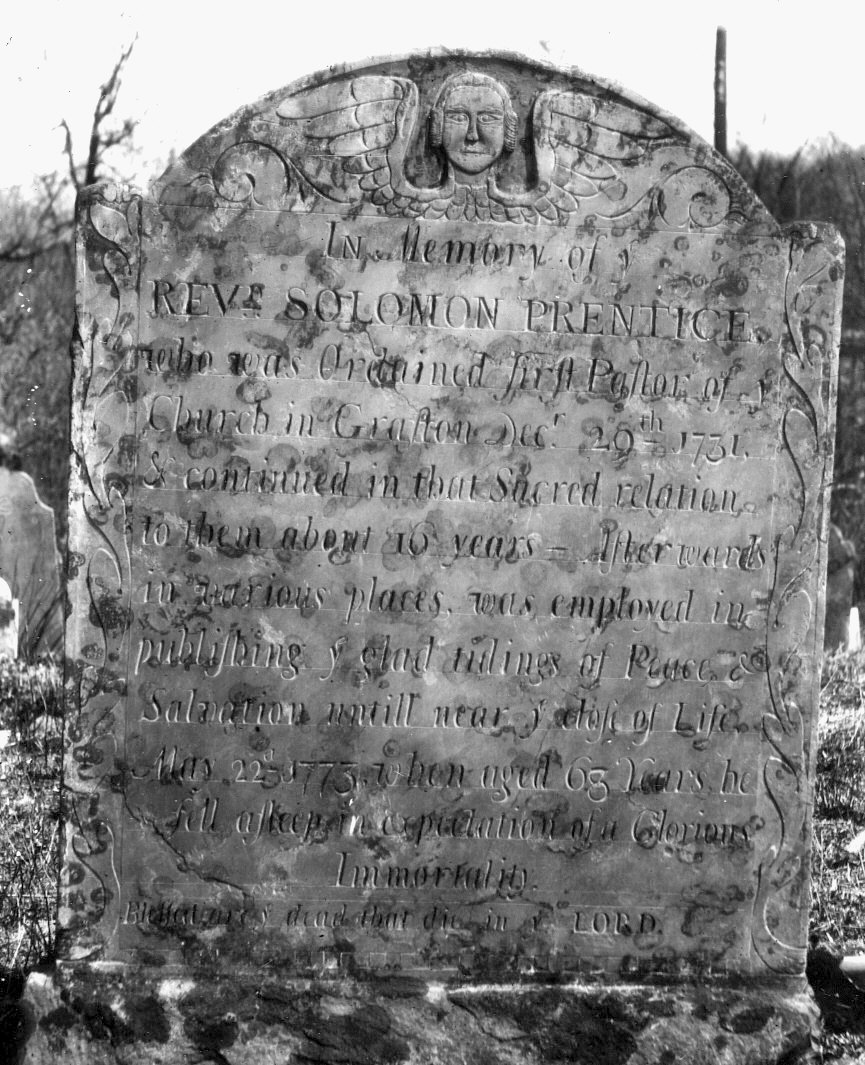 In Memory of yͤ
REVᴰ. SOLOMON PRENTICE.
who was Ordained firſt Paſtor of yͤ
Church in Grafton Decʳ. 29ᵗʰ 1731.
& continued in that Sacred relation
to them about 16 years = Afterwards
in various places, was employed in
publiſhing yͤ glad tidings of Peace &
Salvation untill near yͤ cloſe of Life.
May 22ᵈ 1773, when aged 68 Years, he
fell aſleep in expectation of a Glorious
Immortality.
Bleſſed are yͤ dead that die in yͤ LORD.